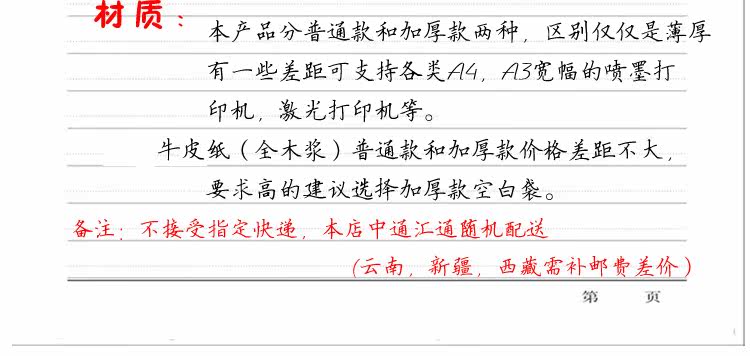 材质：
本产品分普通款和加厚款两种，区别仅仅是薄厚
有一些差距可支持各类A4，A3宽幅的喷墨打
印机，激光打印机等。
牛皮纸（全木浆）普通款和加厚款价格差距不大，
要求高的建议选择加厚款空白袋。
备注：不接受指定快递，本店中通汇通随机配送
(云南，新疆，西藏需补邮费差价)
第 页